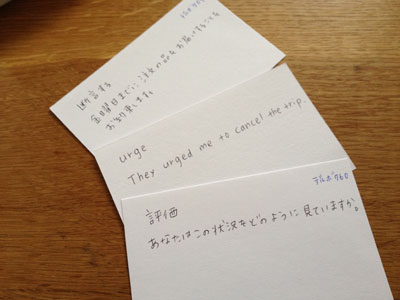 断言する
金曜日までに、ご注文の品をお届けすることを
お約束します。
urge
They urged me to cancel the trip.
評価
あなたはこの状況をどのように見ていますか。